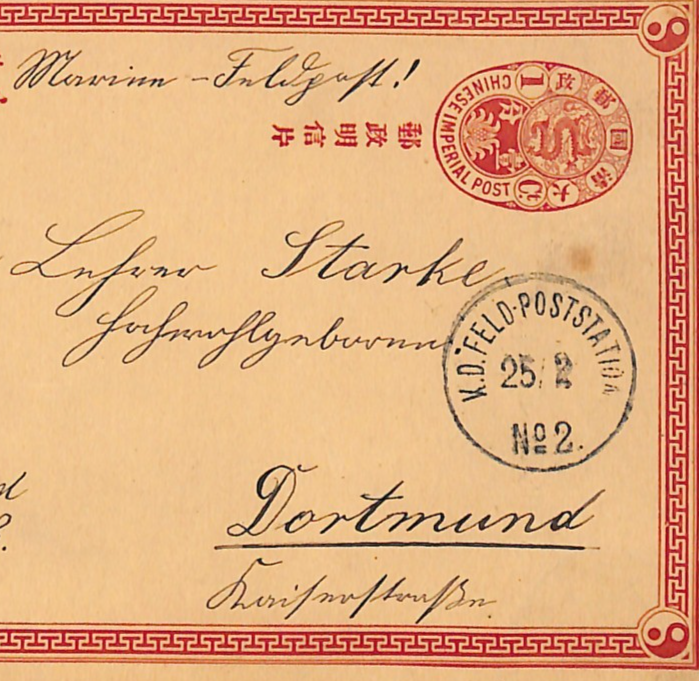 Marine-Feldpost!
郵政明信片
CHINESE IMPERIAL POST
1 Ct.
大清國郵政
壹分
Lehrer Starke
Hochwohlgeboren
K.D. FELD-POSTSTATION
25/2
No 2.
Dortmund
Kaiserstraße.